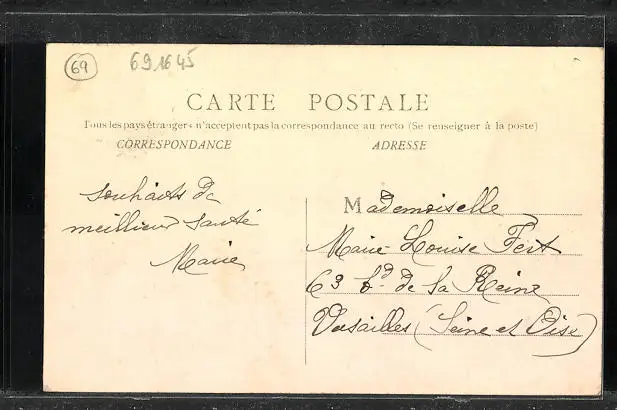 69
691645
CARTE POSTALE
Tous les pays étrangers n'acceptent pas la correspondance au recto (Se renseigner à la poste)
CORRESPONDANCE
ADRESSE
Souhaits de
meilleure santé
Marie
Mademoiselle
Marie-Louise Fert
63 Bd de la Reine
Versailles (Seine et Oise)